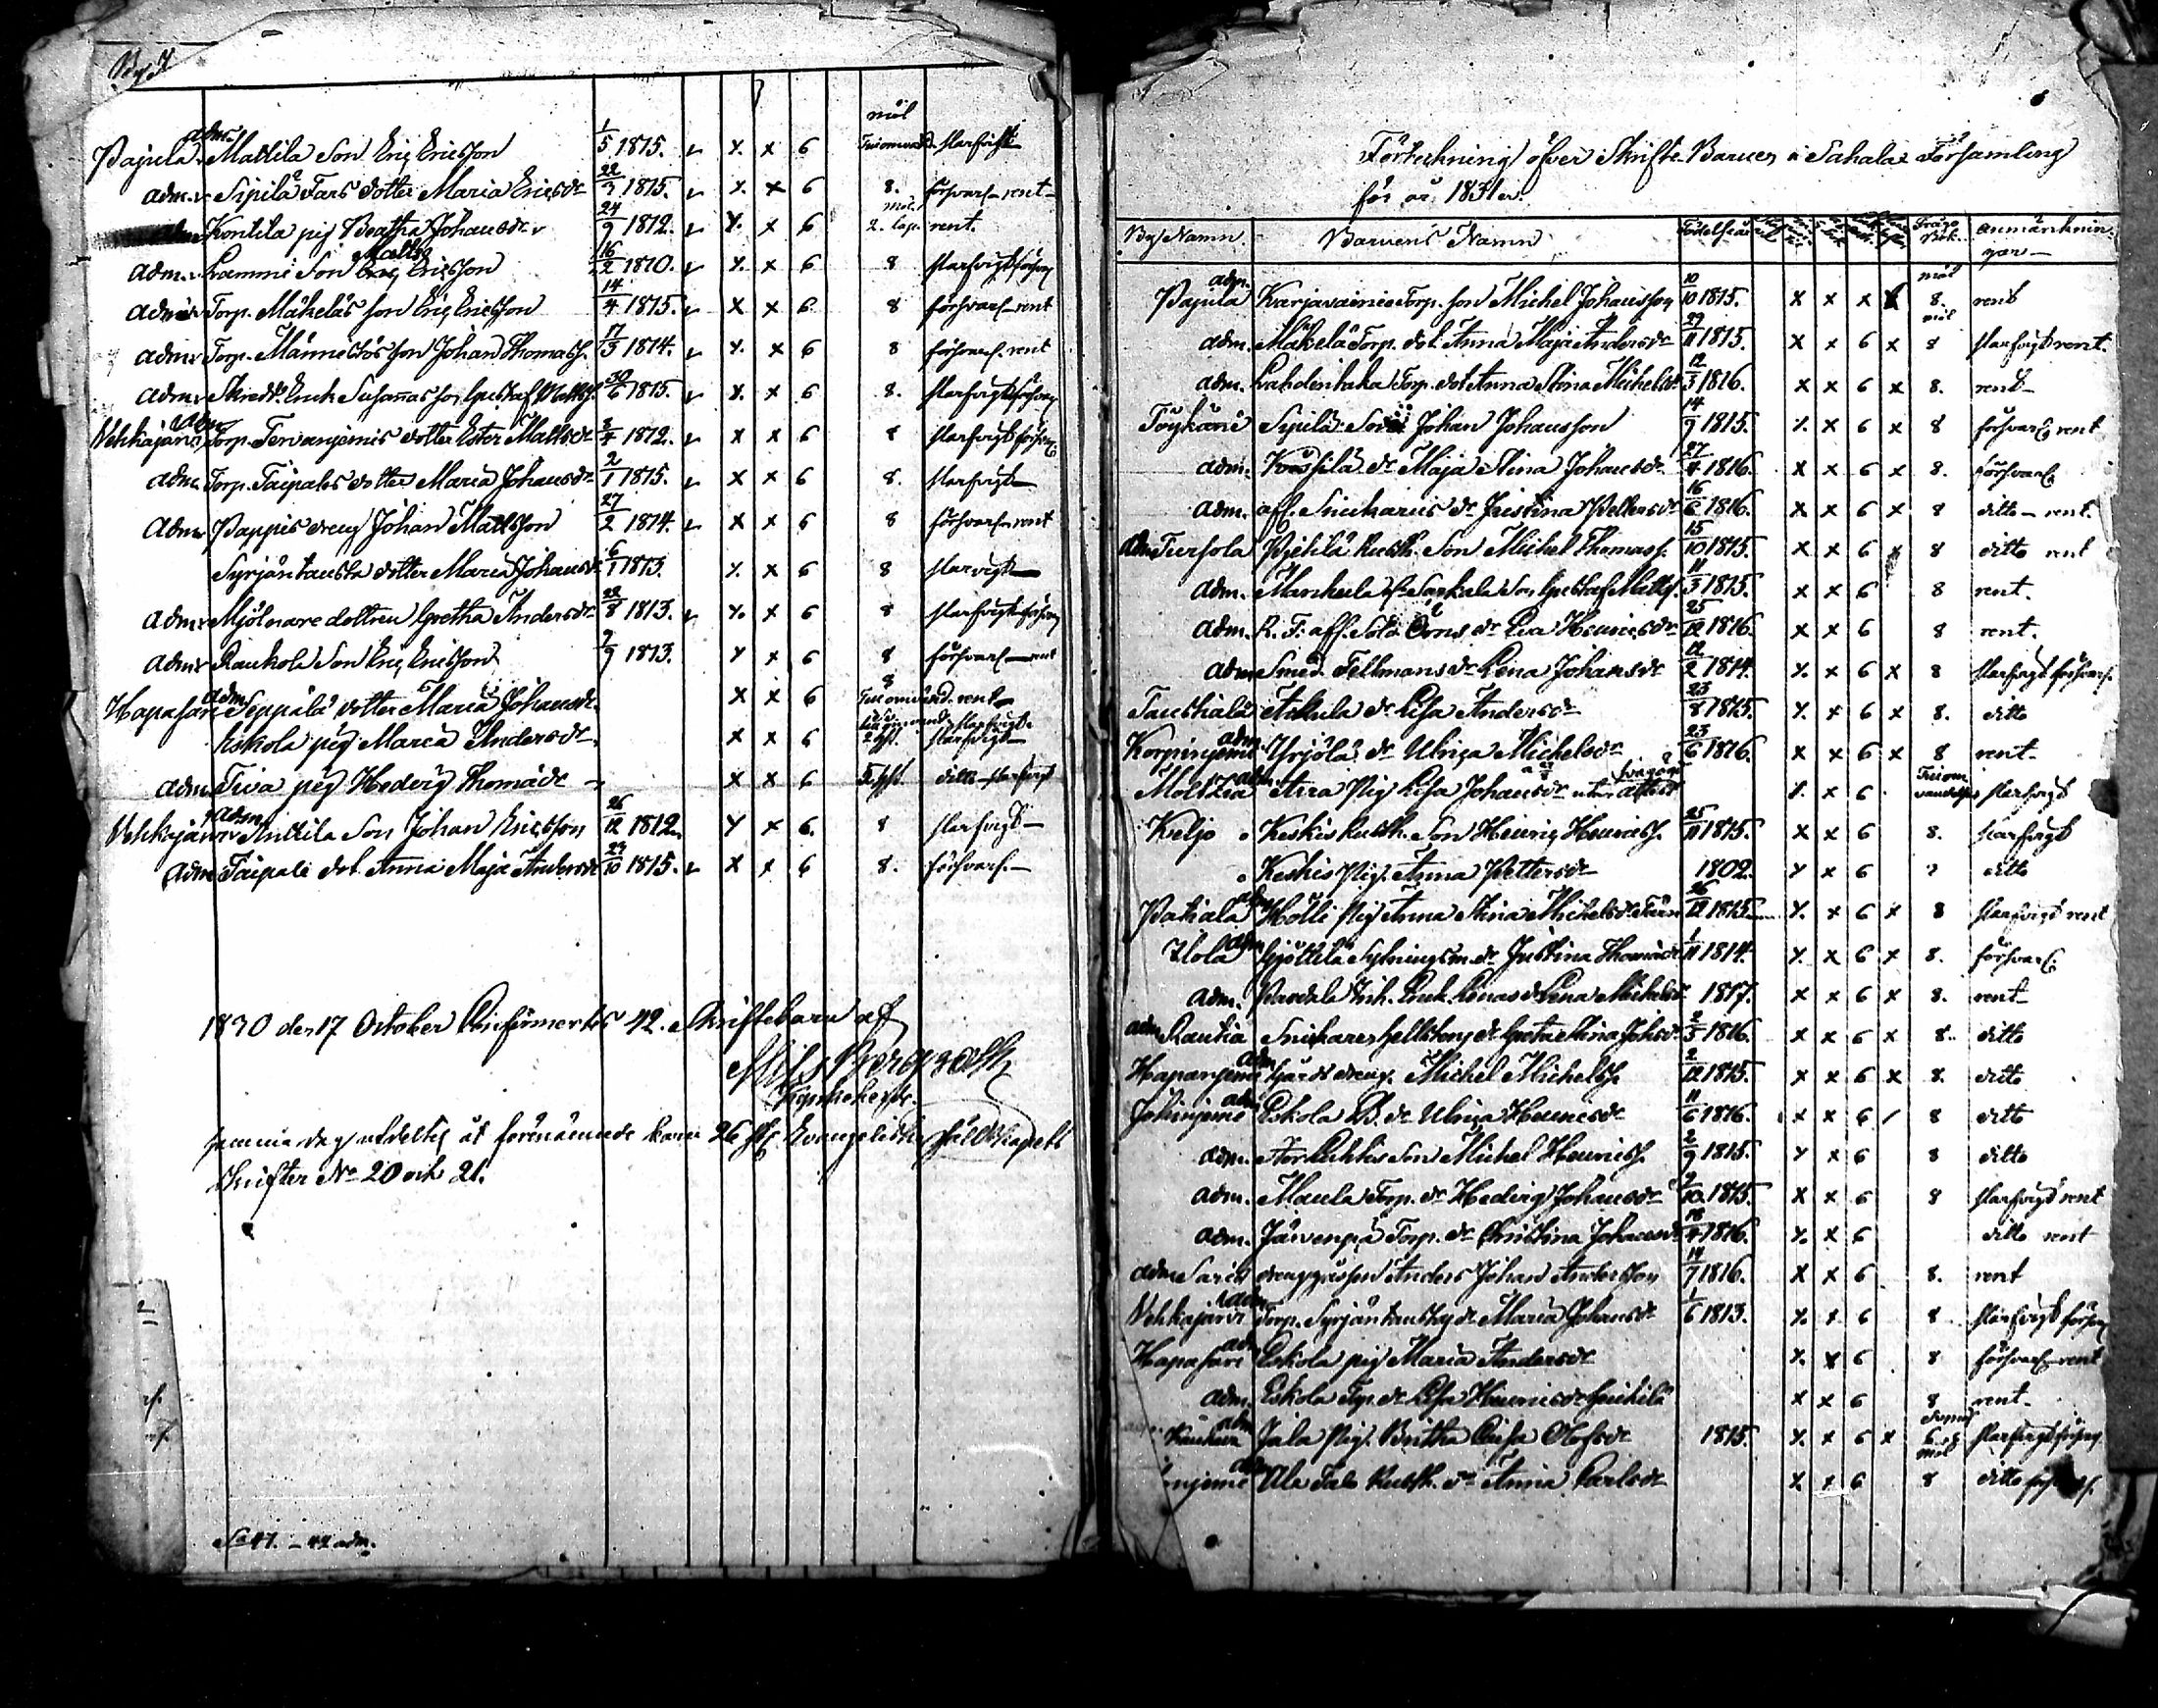 By N
Pajula adm. Mattila Son Eric Ericsson 1/5 1815. v x x 6 mål slarfvigt
adm. Sipilä Fars dotter Maria Ericsdr 22/3 1815. v x x 6 8. försvarl. rent
Kontila pig Beatha Johansdr 24/9 1812. v x x 6 2. rent.
adm. Lammi Son Matts Ericsson 16/2 1810. v x x 6 8 slarfvigt försvarl
adm. Torp. Mäkeläs son Eric Ericsson 14/4 1815. v x x 6 8 försvarl. rent
adm. Torp. Männistös son Johan Thomass. 17/3 1814. v x x 6 8 försvarl. rent
adm. Skredd. Enck Susannas son Gustaf Mattss. 30/6 1815. v x x 6 8. slarfvigt försvarl
Vehkajärvi adm Torp. Tervanjemis dotter Ester Mattsdr 3/4 1812. v x x 6 8 slarfvigt försvarl
adm. Torp. Taipales dotter Maria Johansdr 2/1 1815. v x x 6 8. slarfvigt
adm Pappis dreng Johan Mattsson 27/2 1814. v x x 6 8 försvarl. rent
Syrjäntausta dotter Maria Johansdr 6/1 1813. x x 6 8 slarfvigt
adm. Mjölnare dottren Gretha Andersdr 22/8 1813. v x x 6 8 slarfvigt försvarl
adm Raukola Son Eric Ericsson 7/9 1813. x x 6 8 försvarl. rent
Hapasari adm Seppälä dotter Maria Johansdr x x 6 8 rent
Eskola pig Maria Andersdr x x 6 slarfvigt
adm Tiva pig Hedvig Thomädr x x 6 ditto slarfvigt
Vehkajärvi adm Anttila Son Johan Ericsson 26/12 1812. x x 6. 8 slarfvigt
adm Taipale dot. Anna Maja Andersdr 23/10 1815. v x x 6 8. försvarl.
1830 den 17 October Confirmertes 42. Skriftebarn af
Nils Bergroth
Kyrkoherde.
samma dag utdeltes åt förenämnde barn 26 st. Evangeliska Sällskapets
Skrifter No 20 och 21.
Sa 47. – 42 adm.
Förteckning öfver Skrifte Barnen i Sahalax Församling
för år 1831er.
By Namn Barnens Namn Födelseår Frågo Bok. anmärkningar
Pajula adm. Karjavainio Torp. son Michel Johansson 10/10 1815. x x x mål 8. rent
adm. Mäkelä Torp. dot. Anna Maja Andersdr 29/11 1815. x x 6 x mål 8 slarfvigt rent.
adm. Lahdentaka Torp. dot Anna Stina Michelsdr 12/3 1816. x x 6 x 8. rent
Töykänä Sipilä Son Johan Johansson 14/9 1815. x x 6 x 8 försvarl. rent
adm. Kossilä dr Maja Stina Johansdr 27/4 1816. x x 6 x 8. försvarl.
adm. aff. Snickaries dr Justina Pettersdr 16/6 1816. x x 6 x 8 ditto rent.
adm Tursola Pietilä Rusth. Son Michel Thomass. 15/10 1815. x x 6 x 8 ditto rent
adm. Mankula Sarkala Son Gustaf Mattss. 11/3 1815. x x 6 8 rent.
adm. R. T. aff. Sold. Örns dr Eva Henricsdr 25/12 1816. x x 6 8 rent.
adm Smed Tellmans dr Lena Johansdr 12/2 1814. x x 6 x 8 slarfvigt försvarl.
Taustiala Ankula dr Lisa Andersdr 23/8 1815. x x 6 x 8. ditto
Korpinjemi adm. Yrjölä dr Ulrica Michelsdr 23/6 1816. x x 6 x 8 rent
Moltzia adm Arra Pig Lisa Johansdr utan attest x x 6 slarfvigt
Keljo Keskis Rusth. Son Henric Henricss. 25/11 1815. x x 6 8. slarfvigt
Keskis Pig. Anna Pettersdr 1802. x x 6 ? ditto
Pakala adm Hölli Pig Anna Stina Michelsdr 26/12 1815. x x 6 x 8 slarfvigt rent
Ilola adm Gjöttilä Sytningsm. dr Justina Thomædr 1/11 1814. x x 6 x 8. försvarl.
adm. Pardala Inh. Enck. Lenas dr Lena Michelsdr 1817. x x 6 x 8. rent
adm Rautia Snickares Hellsteng dr Greta Stina Johsdr 2/5 1816. x x 6 x 8. ditto
Hapanjemi adm Gjärds dreng. Michel Michelss. 2/12 1815. x x 6 x 8. ditto
Jokinjemi adm Eskola B. dr Ulrica Henricsdr 11/6 1816. x x 6 / 8 ditto
adm. Stor Luhtis Son Michel Henricss. 2/9 1815. x x 6 8 ditto
adm. Maula Torp. dr Hedvig Johansdr 9/10 1815. x x 6 8 slarfvigt rent
adm. Järvenpä Torp. dr Christina Johansdr 18/4 1816. x x 6 ditto rent
adm Saris drenggåssen Anders Johan Andersson 14/7 1816. x x 6 8. rent
Vehkajärvi adm Torp. Syrjäntausta dr Maria Johansdr 1/6 1813. x x 6 8 slarfvigt försvarl
Hapasari adm Eskola pig Maria Andersdr x x 6 8 försvarl. rent
adm. Eskola Torp. dr Lisa Henricsdr x x 6 8 rent
adm Jala Pig. Britha Caisa Olofsdr 1815. x x 6 x 6 mål slarfvigt försvarl
njemi adm Ala Talo Rusth. dr Anna Carlsdr x x 6 8 ditto